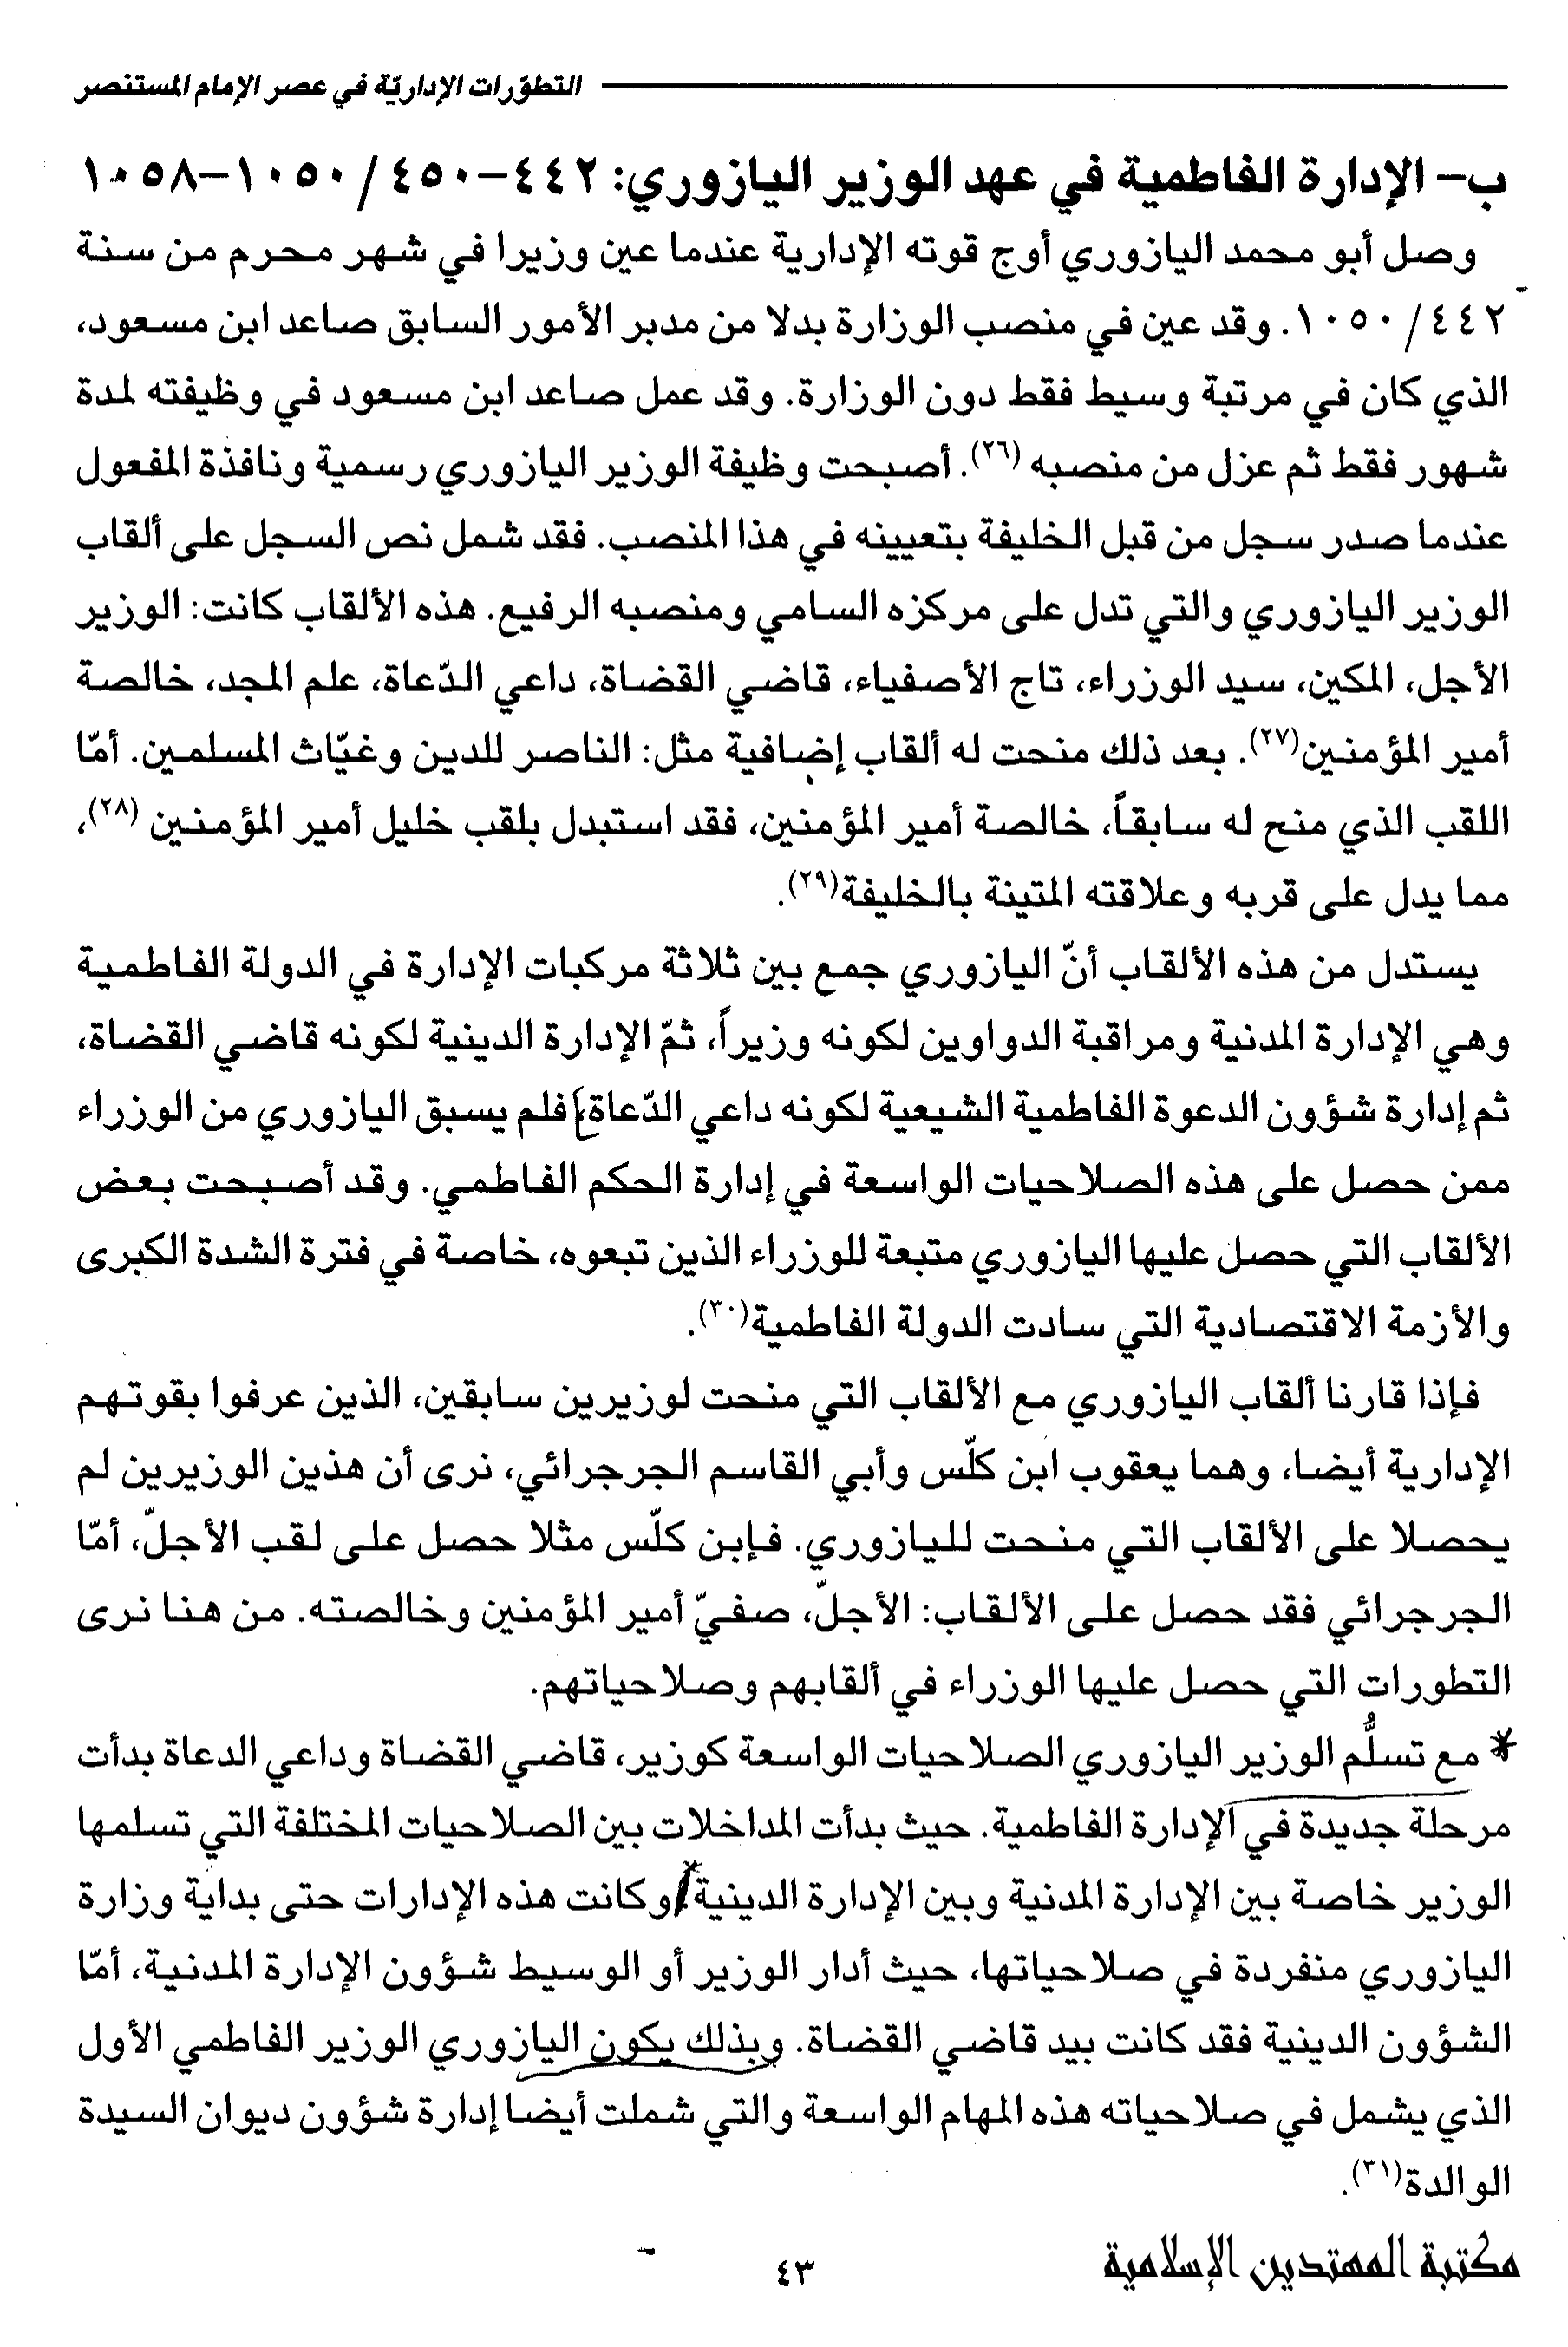 التطوّرات الإداريّة في عصر الإمام المستنصر
ب- الإدارة الفاطمية في عهد الوزير اليازوري: ٤٤٢-٤٥٠/ ١٠٥٠-١٠٥٨
وصل أبو محمد اليازوري أوج قوته الإدارية عندما عين وزيرا في شهر محرم من سنة
٤٤٢/ ١٠٥٠. وقد عين في منصب الوزارة بدلا من مدبر الأمور السابق صاعد ابن مسعود،
الذي كان في مرتبة وسيط فقط دون الوزارة. وقد عمل صاعد ابن مسعود في وظيفته لمدة
شهور فقط ثم عزل من منصبه (٢٦). أصبحت وظيفة الوزير اليازوري رسمية ونافذة المفعول
عندما صدر سجل من قبل الخليفة بتعيينه في هذا المنصب. فقد شمل نص السجل على ألقاب
الوزير اليازوري والتي تدل على مركزه السامي ومنصبه الرفيع. هذه الألقاب كانت: الوزير
الأجل، المكين، سيد الوزراء، تاج الأصفياء، قاضي القضاة، داعي الدّعاة، علم المجد، خالصة
أمير المؤمنين(٢٧). بعد ذلك منحت له ألقاب إضافية مثل: الناصر للدين وغيّاث المسلمين. أمّا
اللقب الذي منح له سابقاً، خالصة أمير المؤمنين، فقد استبدل بلقب خليل أمير المؤمنين (٢٨)،
مما يدل على قربه وعلاقته المتينة بالخليفة(٢٩).
يستدل من هذه الألقاب أنّ اليازوري جمع بين ثلاثة مركبات الإدارة في الدولة الفاطمية
وهي الإدارة المدنية ومراقبة الدواوين لكونه وزيراً، ثمّ الإدارة الدينية لكونه قاضي القضاة،
ثم إدارة شؤون الدعوة الفاطمية الشيعية لكونه داعي الدّعاة. فلم يسبق اليازوري من الوزراء
ممن حصل على هذه الصلاحيات الواسعة في إدارة الحكم الفاطمي. وقد أصبحت بعض
الألقاب التي حصل عليها اليازوري متبعة للوزراء الذين تبعوه، خاصة في فترة الشدة الكبرى
والأزمة الاقتصادية التي سادت الدولة الفاطمية(٣٠).
فإذا قارنا ألقاب اليازوري مع الألقاب التي منحت لوزيرين سابقين، الذين عرفوا بقوتهم
الإدارية أيضا، وهما يعقوب ابن كلّس وأبي القاسم الجرجرائي، نرى أن هذين الوزيرين لم
يحصلا على الألقاب التي منحت لليازوري. فإبن كلّس مثلا حصل على لقب الأجلّ، أمّا
الجرجرائي فقد حصل على الألقاب: الأجلّ، صفيّ أمير المؤمنين وخالصته. من هنا نرى
التطورات التي حصل عليها الوزراء في ألقابهم وصلاحياتهم.
* مع تسلُّم الوزير اليازوري الصلاحيات الواسعة كوزير، قاضي القضاة وداعي الدعاة بدأت
مرحلة جديدة في الإدارة الفاطمية. حيث بدأت المداخلات بين الصلاحيات المختلفة التي تسلمها
الوزير خاصة بين الإدارة المدنية وبين الإدارة الدينية. وكانت هذه الإدارات حتى بداية وزارة
اليازوري منفردة في صلاحياتها، حيث أدار الوزير أو الوسيط شؤون الإدارة المدنية، أمّا
الشؤون الدينية فقد كانت بيد قاضي القضاة. وبذلك يكون اليازوري الوزير الفاطمي الأول
الذي يشمل في صلاحياته هذه المهام الواسعة والتي شملت أيضا إدارة شؤون ديوان السيدة
الوالدة(٣١).
٤٣
مكتبة المهتدين الإسلامية